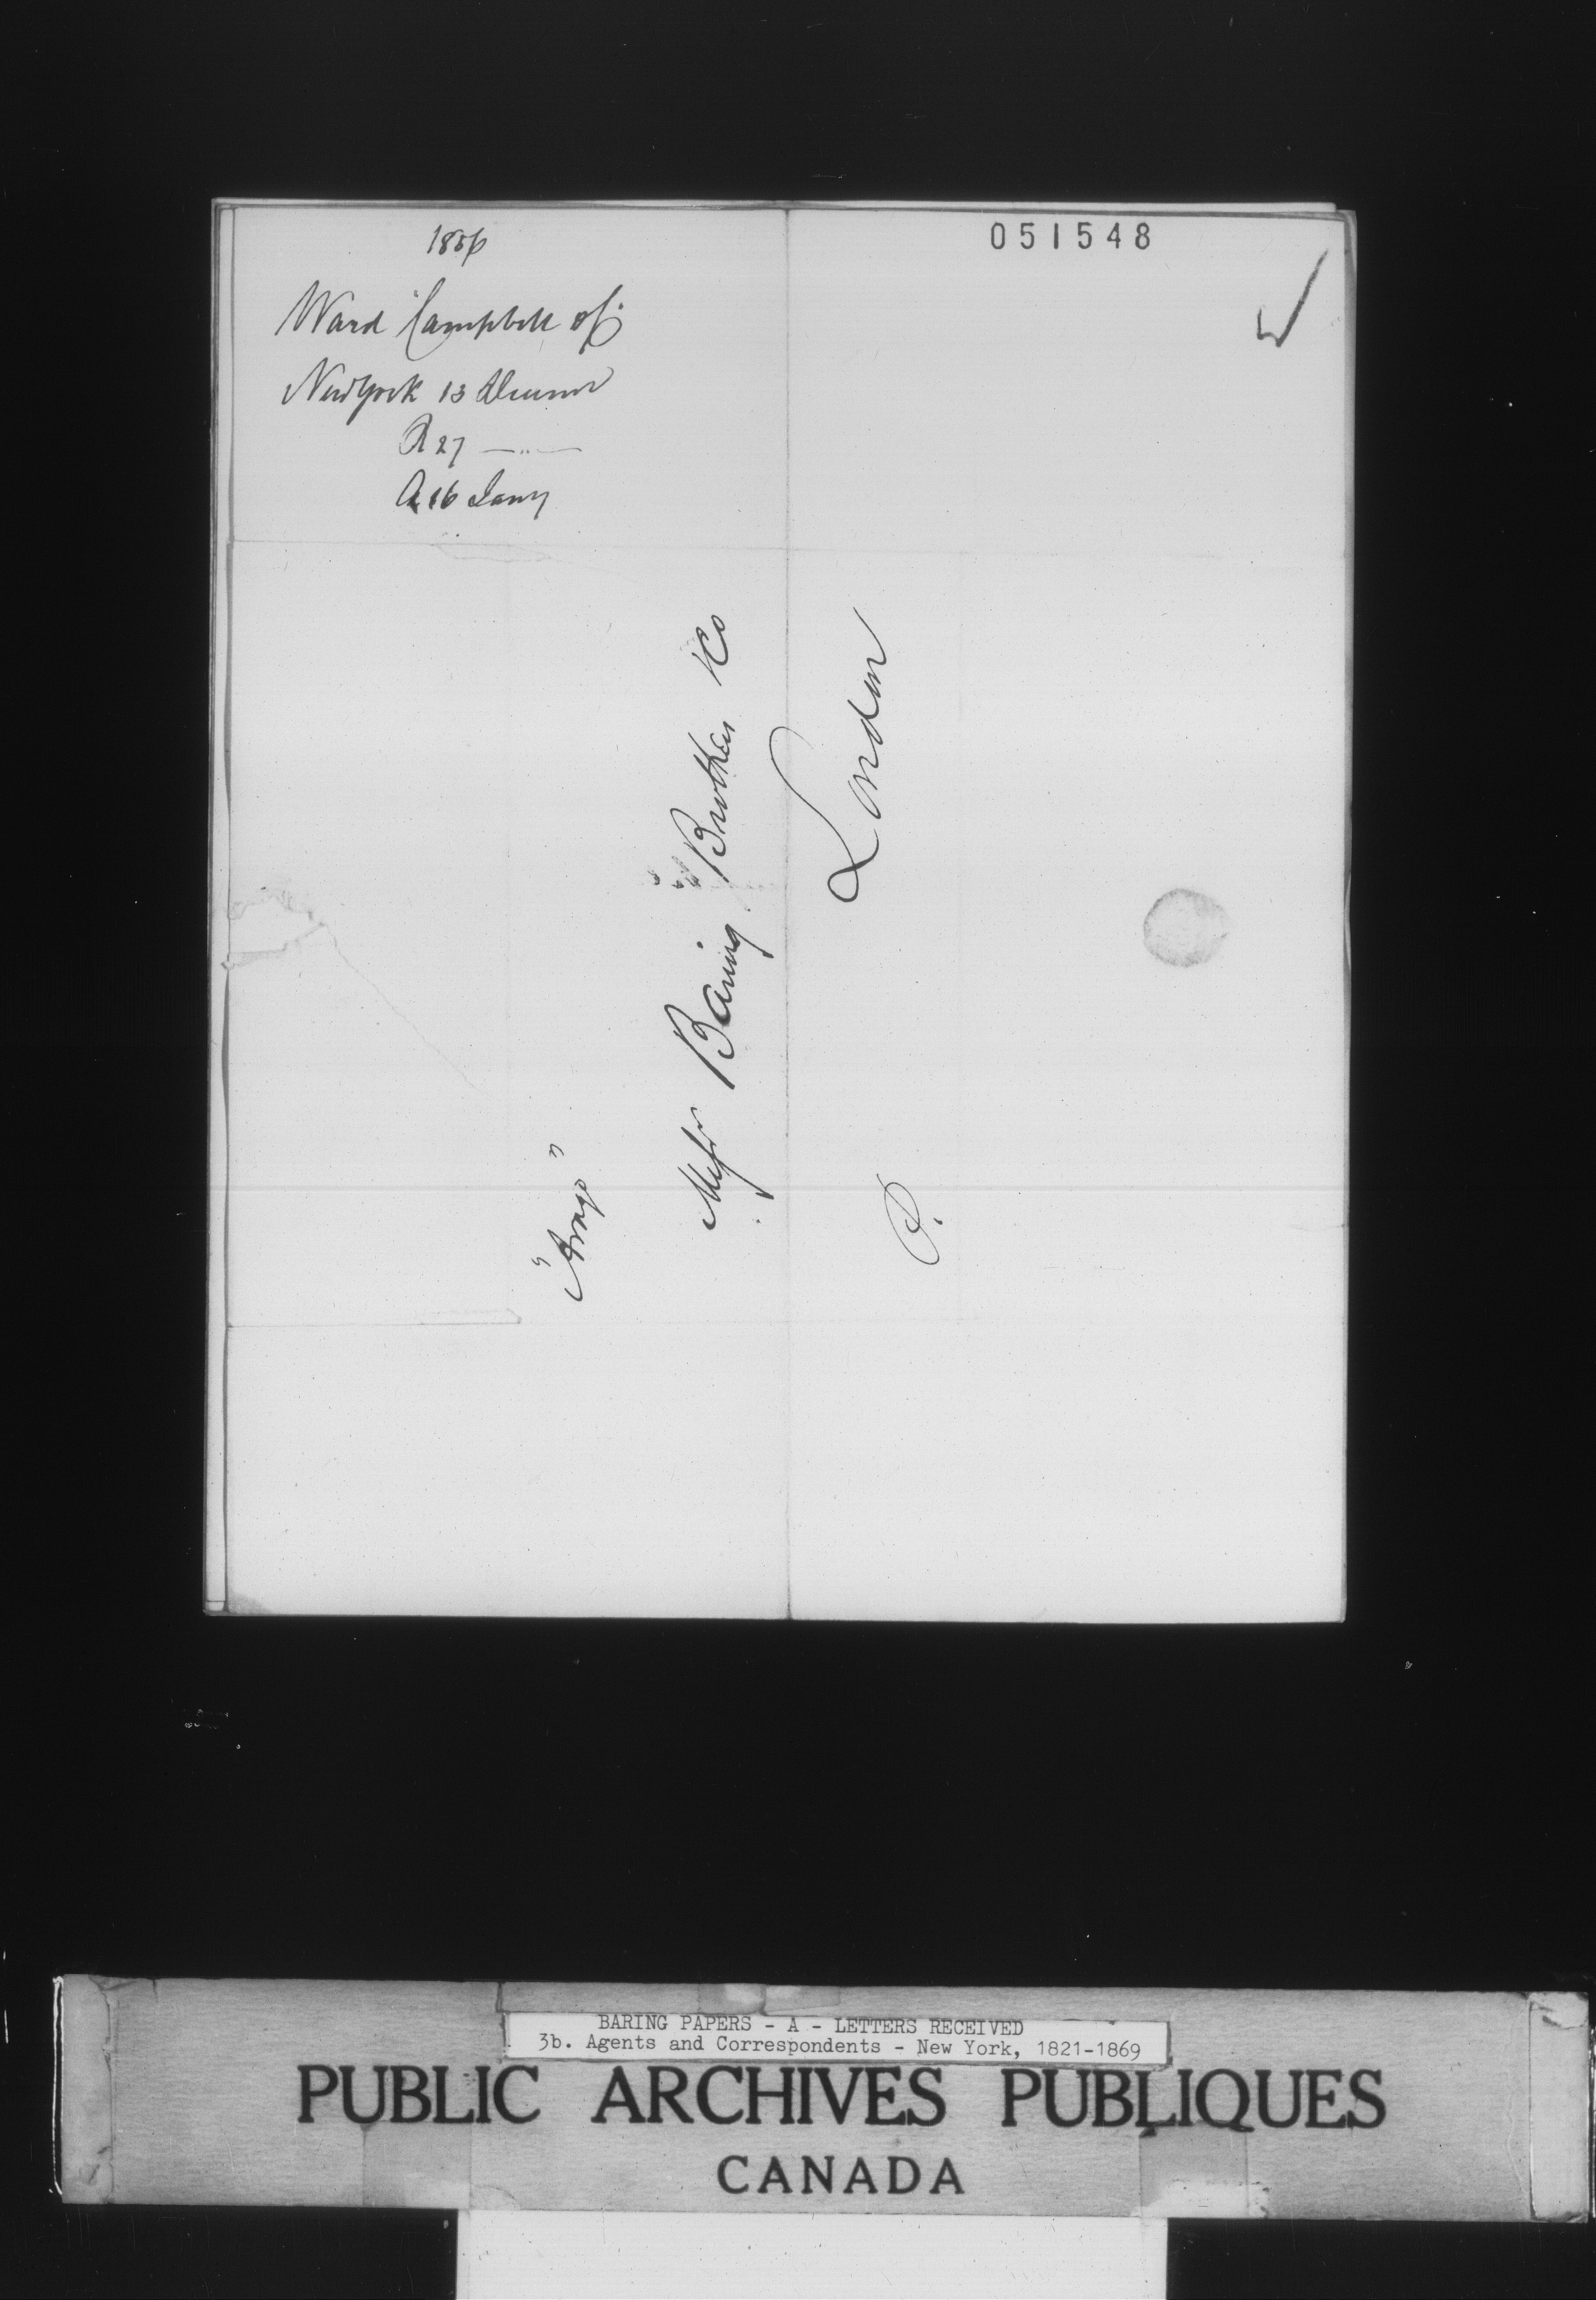 1856
051548
Ward Campbell &Co
New York 13 December
R 27 — " —
A 16 Jany
"Arago"
Messrs Baring Brothers &Co
London
P.
BARING PAPERS - A - LETTERS RECEIVED
3b. Agents and Correspondents - New York, 1821-1869
PUBLIC ARCHIVES PUBLIQUES
CANADA